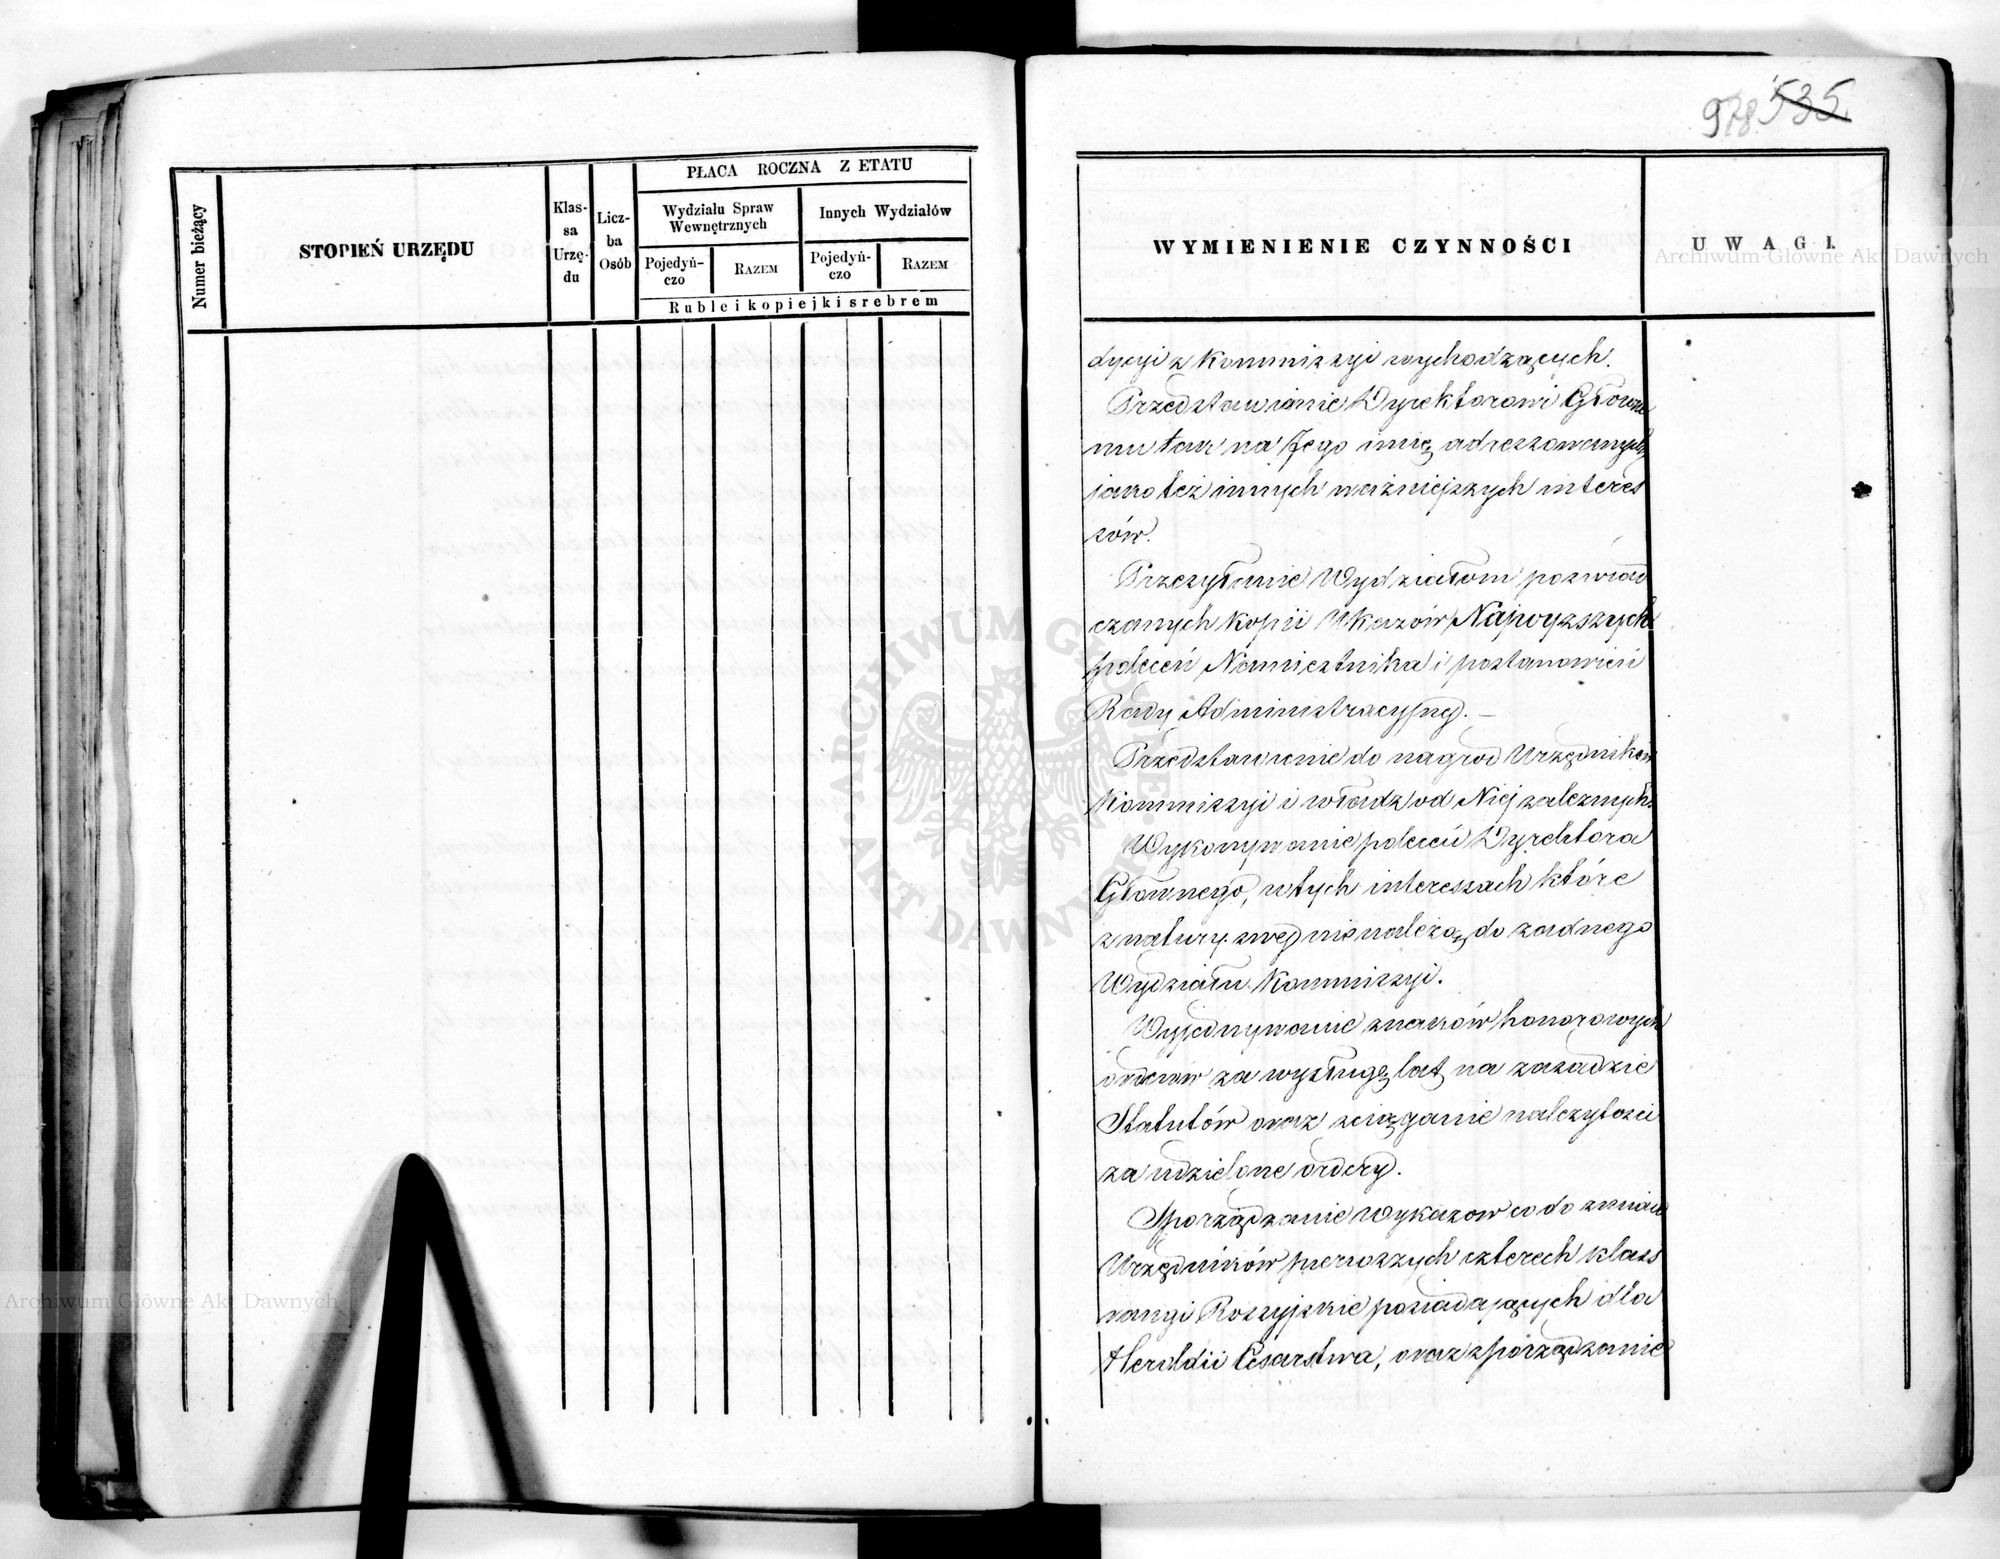 978 535.
PŁACA ROCZNA Z ETATU
Numer bieżący
STOPIEŃ URZĘDU
Klas-
sa
Urzę-
du
Licz-
ba
Osób
Wydziału Spraw
Wewnętrznych
Innych Wydziałów
Pojedyń-
czo
RAZEM
Pojedyń-
czo
RAZEM
Ruble i kopiejki srebrem
WYMIENIENIE CZYNNOŚCI
UWAGI.
dycyi z Kommissyi wychodzących.
Przedstawianie Dyrektorowi Główne
mu tak na Jego imię adressowanych
jako też innych ważniejszych interes
sów.
Przesyłanie Wydziałom poświad
czonych kopii Ukazów Najwyższych
poleceń Namiestnika i postanowień
Rady Administracyjnej. —
Przedstawienie do nagród Urzędników
Kommissyi i władz od Niej zależnych
Wykonywanie poleceń Dyrektora
Głównego, w tych interessach które
z natury swej nie należą do żadnego
Wydziału Kommissyi.
Wyjednywanie znaków honorowych
orderów za wysługę lat, na zasadzie
Statutów oraz ściąganie należytości
za udzielone ordery.
Sporządzanie Wykazów co do zmian
Urzędników pierwszych czterech klass
rangi Rossyjskie posiadających dla
Heroldii Cesarstwa, oraz sporządzanie
Archiwum Główne Akt Dawnych
Archiwum Główne Akt Dawnych
ARCHIWUM GŁÓWNE AKT DAWNYCH